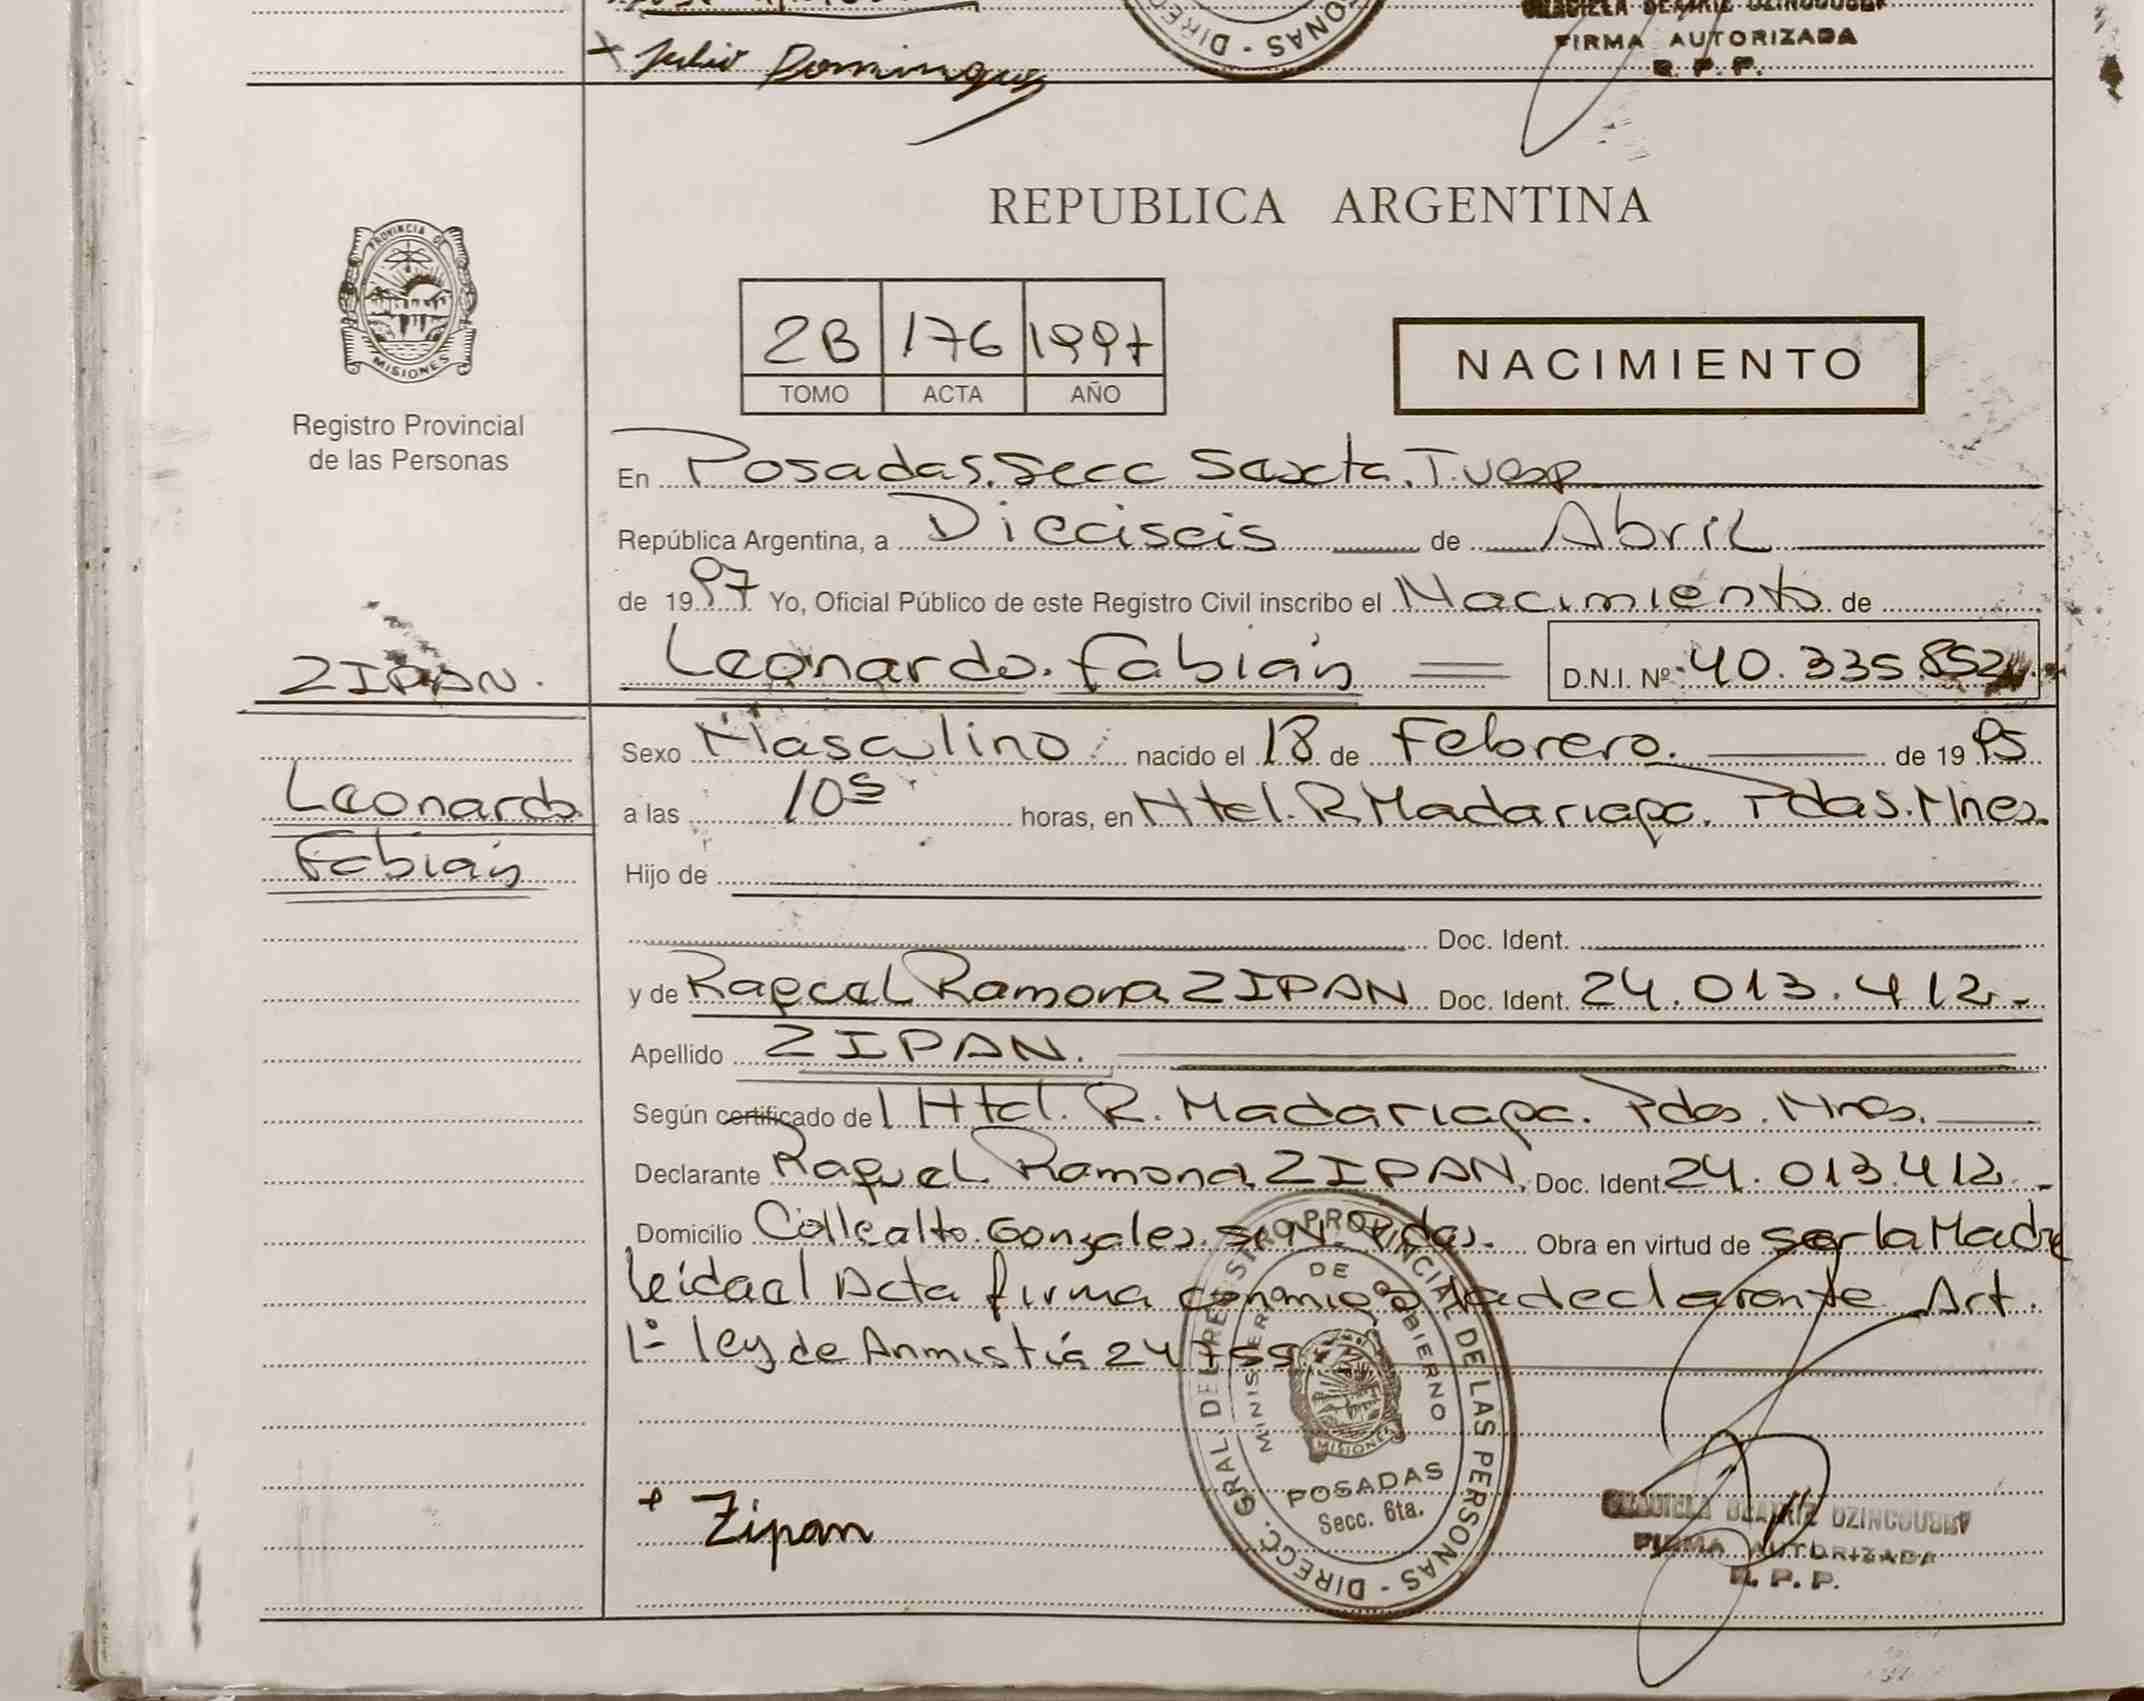 Julio Dominguez
DIRE
ONAS - DIREC
FIRMA AUTORIZADA
R. P. P.
REPUBLICA ARGENTINA
PROVINCIA DE
MISIONES
2B 176 1997
TOMO ACTA AÑO
NACIMIENTO
Registro Provincial
de las Personas
En Posadas. Secc Sexta.
República Argentina, a Dieciseis de Abril
de 1997 Yo, Oficial Público de este Registro Civil inscribo el Nacimiento de
ZIPAN.
Leonardo. Fabián D.N.I. Nº 40.335.852
Sexo Masculino nacido el 18 de Febrero. de 1995
Leonardo
Fabián
a las 10s horas, en Htel. R Madariaga. Pdas. Mnes.
Hijo de
Doc. Ident.
y de Raquel Ramona ZIPAN Doc. Ident. 24.013.412.-
Apellido ZIPAN.
Según certificado del Htel. R. Madariaga. Pdas. Mnes.
Declarante Raquel Ramona ZIPAN. Doc. Ident. 24.013.412.-
Domicilio Calle alto. Gonzales. S/N. Pdas. Obra en virtud de ser la Madre
leida el Acta firma conmigo la declarante Art.
1º ley de Anmistiá 24755
DIRECC. GRAL. DEL REGISTRO PROVINCIAL DE LAS PERSONAS -
MINISTERIO DE GOBIERNO
MISIONES
POSADAS
Secc. 6ta.
+ Zipan
GRACIELA BEATRIZ DZINCOUSKY
FIRMA AUTORIZADA
R. P. P.